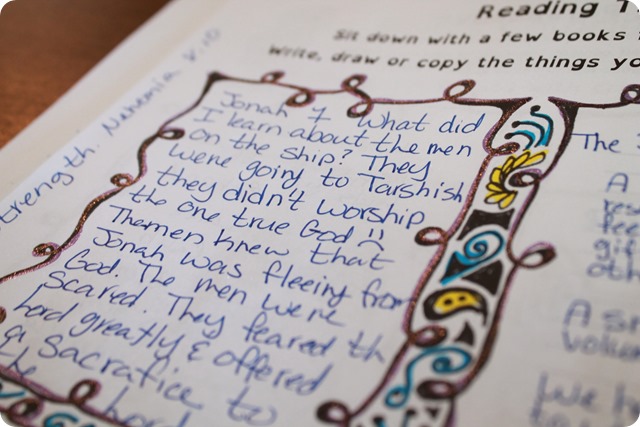 Reading T
Sit down with a few books
Write, draw or copy the things yo
strength. Nehemia 8:10
Jonah 1 What did
I learn about the men
on the ship? They
were going to Tarshish
they didn't worship
the one true God
The men knew that
Jonah was fleeing from
God. The men were
scared. They feared th
Lord greatly & offered
a Sacrafice to
the Lord
The
A
res
fee
gif
oth
A si
volu
We h
to